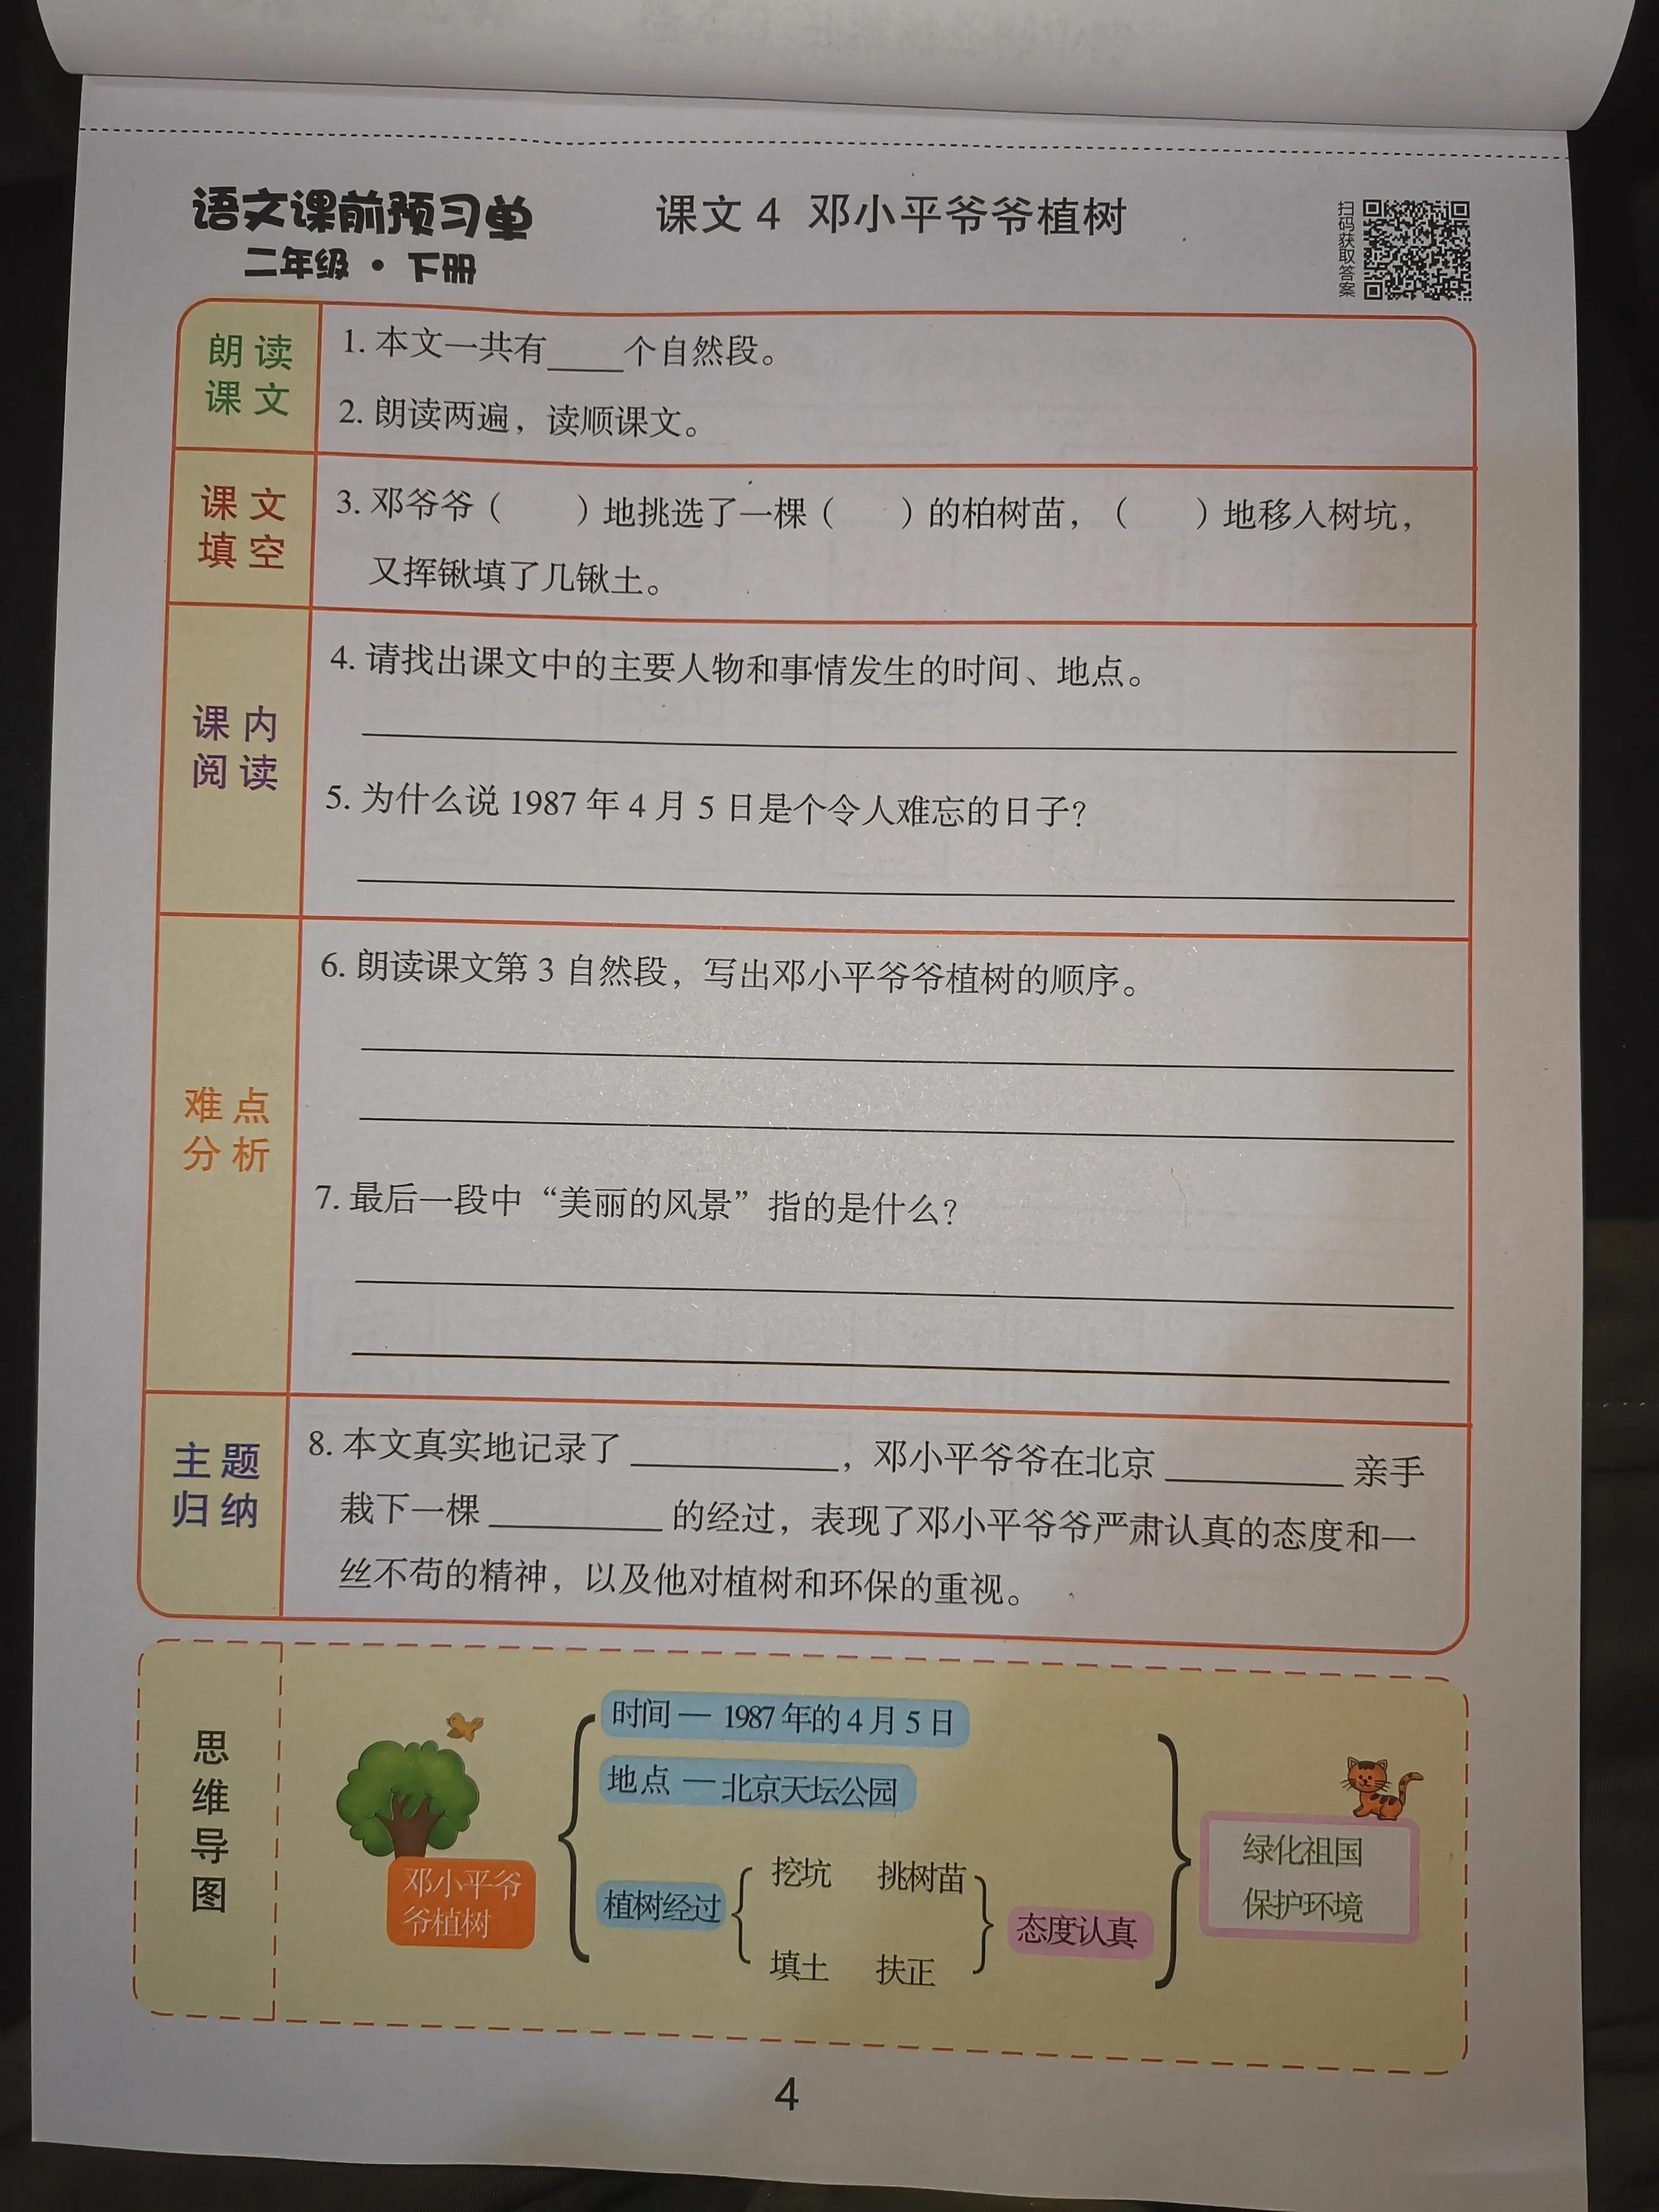 语文课前预习单
二年级·下册
课文4 邓小平爷爷植树
扫码获取答案
朗读
课文
1. 本文一共有____个自然段。
2. 朗读两遍，读顺课文。
课文
填空
3. 邓爷爷（　　）地挑选了一棵（　　）的柏树苗，（　　）地移入树坑，
又挥锹填了几锹土。
课内
阅读
4. 请找出课文中的主要人物和事情发生的时间、地点。
5. 为什么说 1987 年 4 月 5 日是个令人难忘的日子？
难点
分析
6. 朗读课文第 3 自然段，写出邓小平爷爷植树的顺序。
7. 最后一段中“美丽的风景”指的是什么？
主题
归纳
8. 本文真实地记录了__________，邓小平爷爷在北京__________亲手
栽下一棵__________的经过，表现了邓小平爷爷严肃认真的态度和一
丝不苟的精神，以及他对植树和环保的重视。
思维导图
邓小平爷
爷植树
时间—1987年的4月5日
地点—北京天坛公园
植树经过
挖坑 挑树苗
填土 扶正
态度认真
绿化祖国
保护环境
4